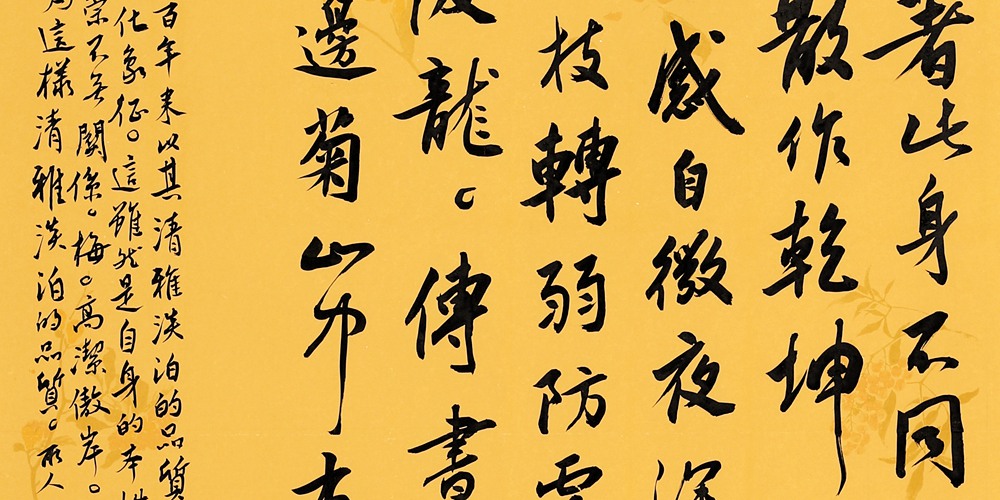 著此身不同
散作乾坤
感自微夜深
枝轉弱防雲
龍。傳書
邊菊山
百年来以其清雅淡泊的品質
化象征。這雖然是自身的本性
關係。梅。高潔傲岸。
這樣清雅淡泊的品質。人